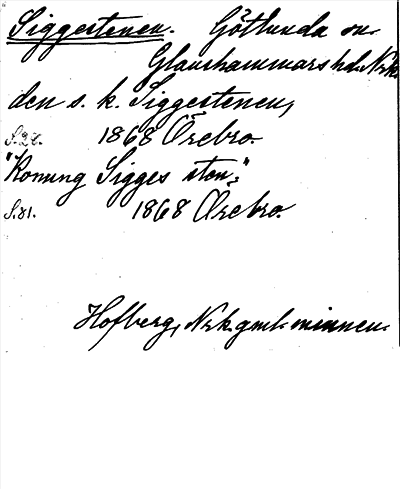 Siggestenen. Götlunda sn.
Glanshammars hd. Nrk.
den s. k. Siggestenen,
S.28. 1868 Örebro.
"Konung Sigges sten";
S.81. 1868 Örebro.
Hofberg, Nrk. gml. minnen.